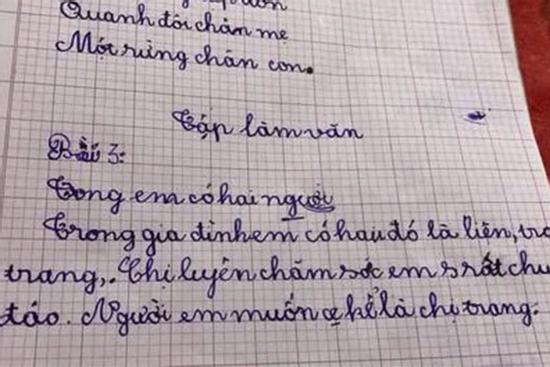 Quanh đôi chân mẹ
Một rừng chân con.
Tập làm văn
Bài 3:
Trong em có hai người
Trong gia đình em có hau đó là liện, tra
trang,. Chị luyên chăm sóc em rất chu
táo. Người em muốn kể là chị trang.